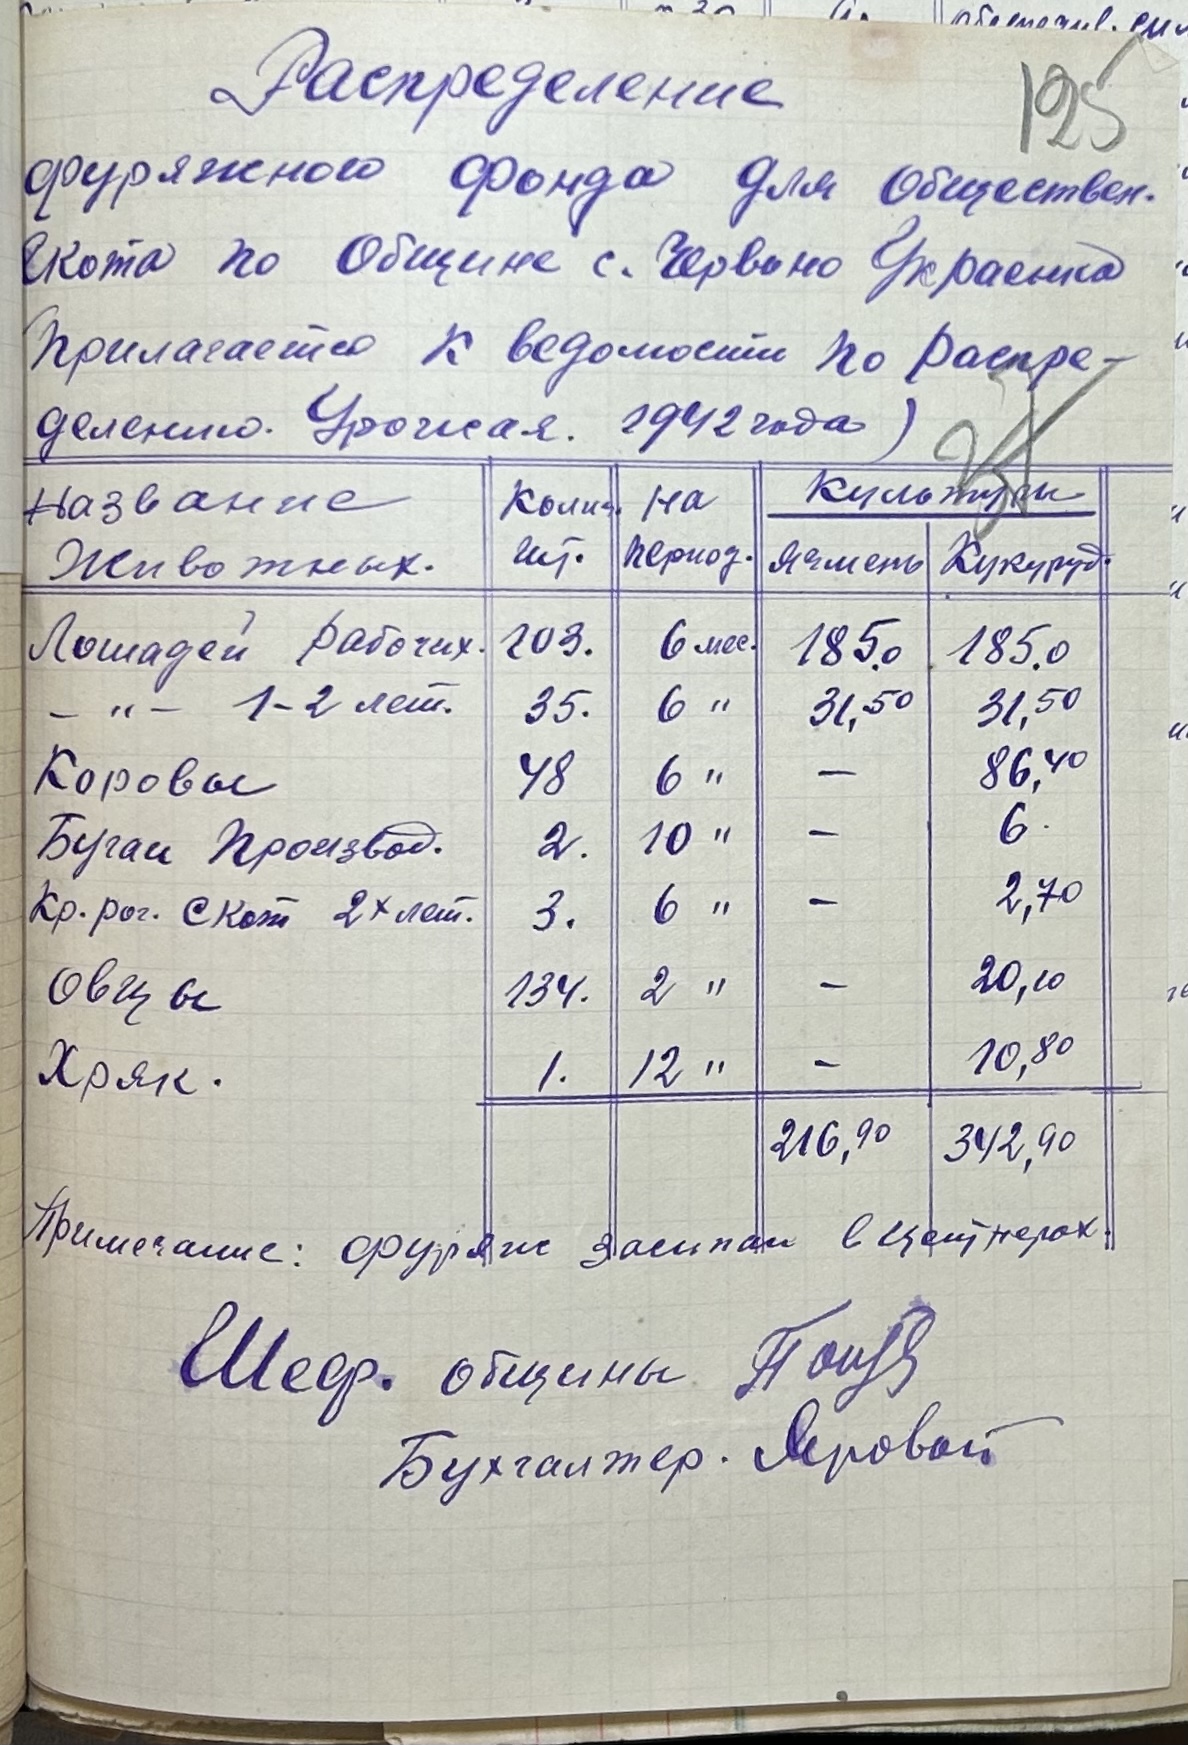 125
Распределение
фуряжного фонда для обществен.
Скота по Общине с. Червоно Украенка
Прилагается к ведомости по распре-
делению. Урожая. 1942 года)
Название Колич. На Культуры
Животных. шт. период. Ячмень Кукуруд.
Лошадей рабочих. 103. 6 мес. 185.0 185.0
- " - 1-2 лет. 35. 6 " 31,50 31,50
Коровы 48 6 " - 86,40
Бугаи Производ. 2. 10 " - 6.
Кр. рог. Скот 2х лет. 3. 6 " - 2,70
Овцы 134. 2 " - 20,10
Хряк. 1. 12 " - 10,80
216,90 342,90
Примечание: фуряж засыпан в центнерах.
Шеф. общины
Бухгалтер. Яровой